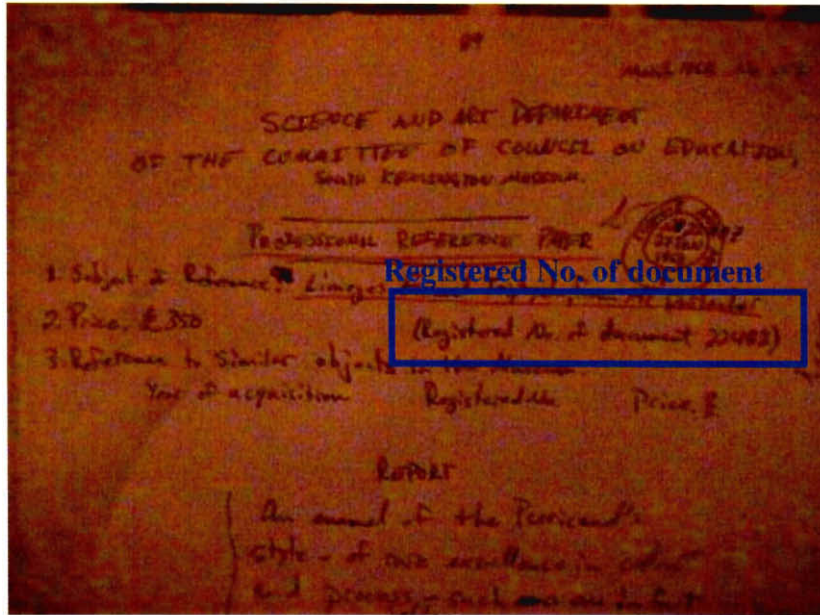 89
SCIENCE AND ART DEPARTMENT
OF THE COMMITTEE OF COUNCIL ON EDUCATION,
SOUTH KENSINGTON MUSEUM.
PROFESSIONAL REFERENCE PAPER
Registered No. of document
1. Subject of Reference. Limoges
2. Price. £350 (Registered No. of document 22402)
3. Reference to Similar objects in the Museum
Year of acquisition Registered No. Price. £
REPORT
An enamel of the
style - of rare excellence in
and process - such